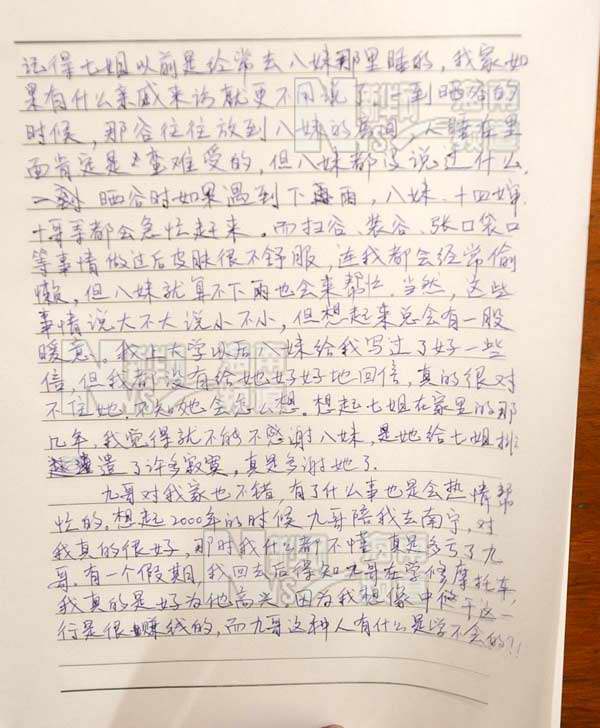 记得七姐以前是经常去八妹那里睡的，我家如
果有什么亲戚来访就更不用说了，到晒谷的
时候，那谷往往放到八妹的房间，人睡在里
面肯定是蛮难受的，但八妹都没说过什么，
一到晒谷时如果遇到下雨，八妹、十四婶、
十哥等都会急忙赶来。而扫谷、装谷、张口袋口
等事情做过后皮肤很不舒服，连我都会经常偷
懒，但八妹就算不下雨也会来帮忙。当然，这些
事情说大不大说小不小，但想起来总会有一股
暖意。我上大学以后八妹给我写过了好一些
信，但我都没有给她好好地回信，真的很对
不住她，不知她会怎么想。想起七姐在家里的那
几年，我觉得就不能不感谢八妹，是她给七姐排
遣了许多寂寞，真是多谢她了。
九哥对我家也不错，有了什么事也是会热情帮
忙的，想起2000年的时候九哥陪我去南宁，对
我真的很好，那时我什么都不懂，真是多亏了九
哥。有一个假期，我回去后得知九哥在学修摩托车，
我真的是好为他高兴，因为我想像中做干这一
行是很赚钱的，而九哥这种人有什么是学不会的?!!